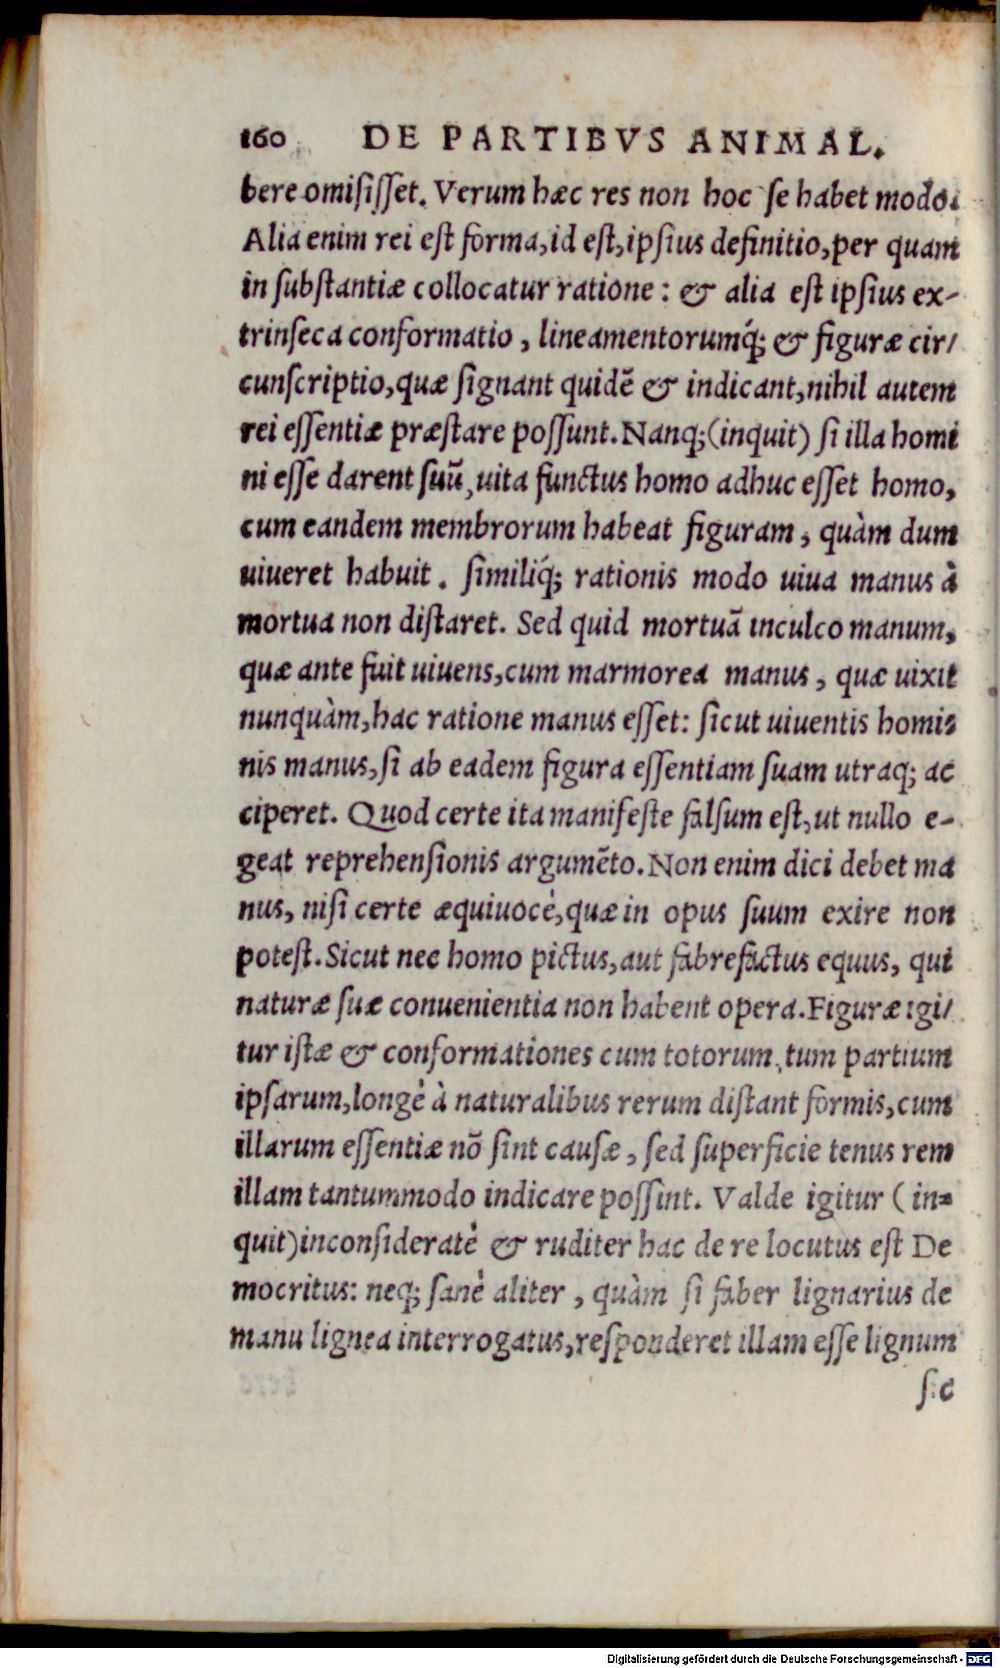 160 DE PARTIBVS ANIMAL.
bere omiſiſſet. Verum hæc res non hoc ſe habet modo.
Alia enim rei eſt forma, id eſt, ipſius definitio, per quam
in ſubſtantiæ collocatur ratione: & alia eſt ipſius ex-
trinſeca conformatio, lineamentorumq́; & figuræ cir/
cunſcriptio, quæ ſignant quidẽ & indicant, nihil autem
rei eſſentiæ præſtare poſſunt. Nanq;(inquit) ſi illa homi
ni eſſe darent ſuũ, uita functus homo adhuc eſſet homo,
cum eandem membrorum habeat figuram, quàm dum
uiueret habuit. ſimiliq́; rationis modo uiua manus à
mortua non diſtaret. Sed quid mortuã inculco manum,
quæ ante fuit uiuens, cum marmorea manus, quæ uixit
nunquàm, hac ratione manus eſſet: ſicut uiuentis homi-
nis manus, ſi ab eadem figura eſſentiam ſuam utraq; ac
ciperet. Quod certe ita manifeſte falſum eſt, ut nullo e-
geat reprehenſionis argumẽto. Non enim dici debet ma
nus, niſi certe æquiuocè, quæ in opus ſuum exire non
poteſt. Sicut nec homo pictus, aut fabrefactus equus, qui
naturæ ſuæ conuenientia non habent opera. Figuræ igi/
tur iſtæ & conformationes cum totorum, tum partium
ipſarum, longè à naturalibus rerum diſtant formis, cum
illarum eſſentiæ nõ ſint cauſæ, ſed ſuperficie tenus rem
illam tantummodo indicare poſſint. Valde igitur (in-
quit) inconſideratè & ruditer hac de re locutus eſt De
mocritus: neq; ſanè aliter, quàm ſi faber lignarius de
manu lignea interrogatus, reſponderet illam eſſe lignum
ſic
Digitalisierung gefördert durch die Deutsche Forschungsgemeinschaft - DFG